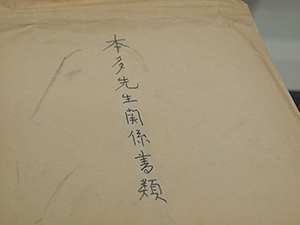 本多先生関係書類